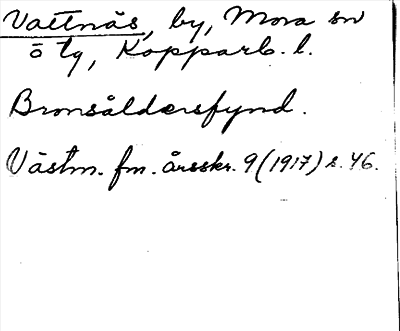 Vattnäs, by, Mora sn
o tg, Kopparb. l.
Bronsåldersfynd.
Västm. fm. årsskr. 9 (1917) s. 46.